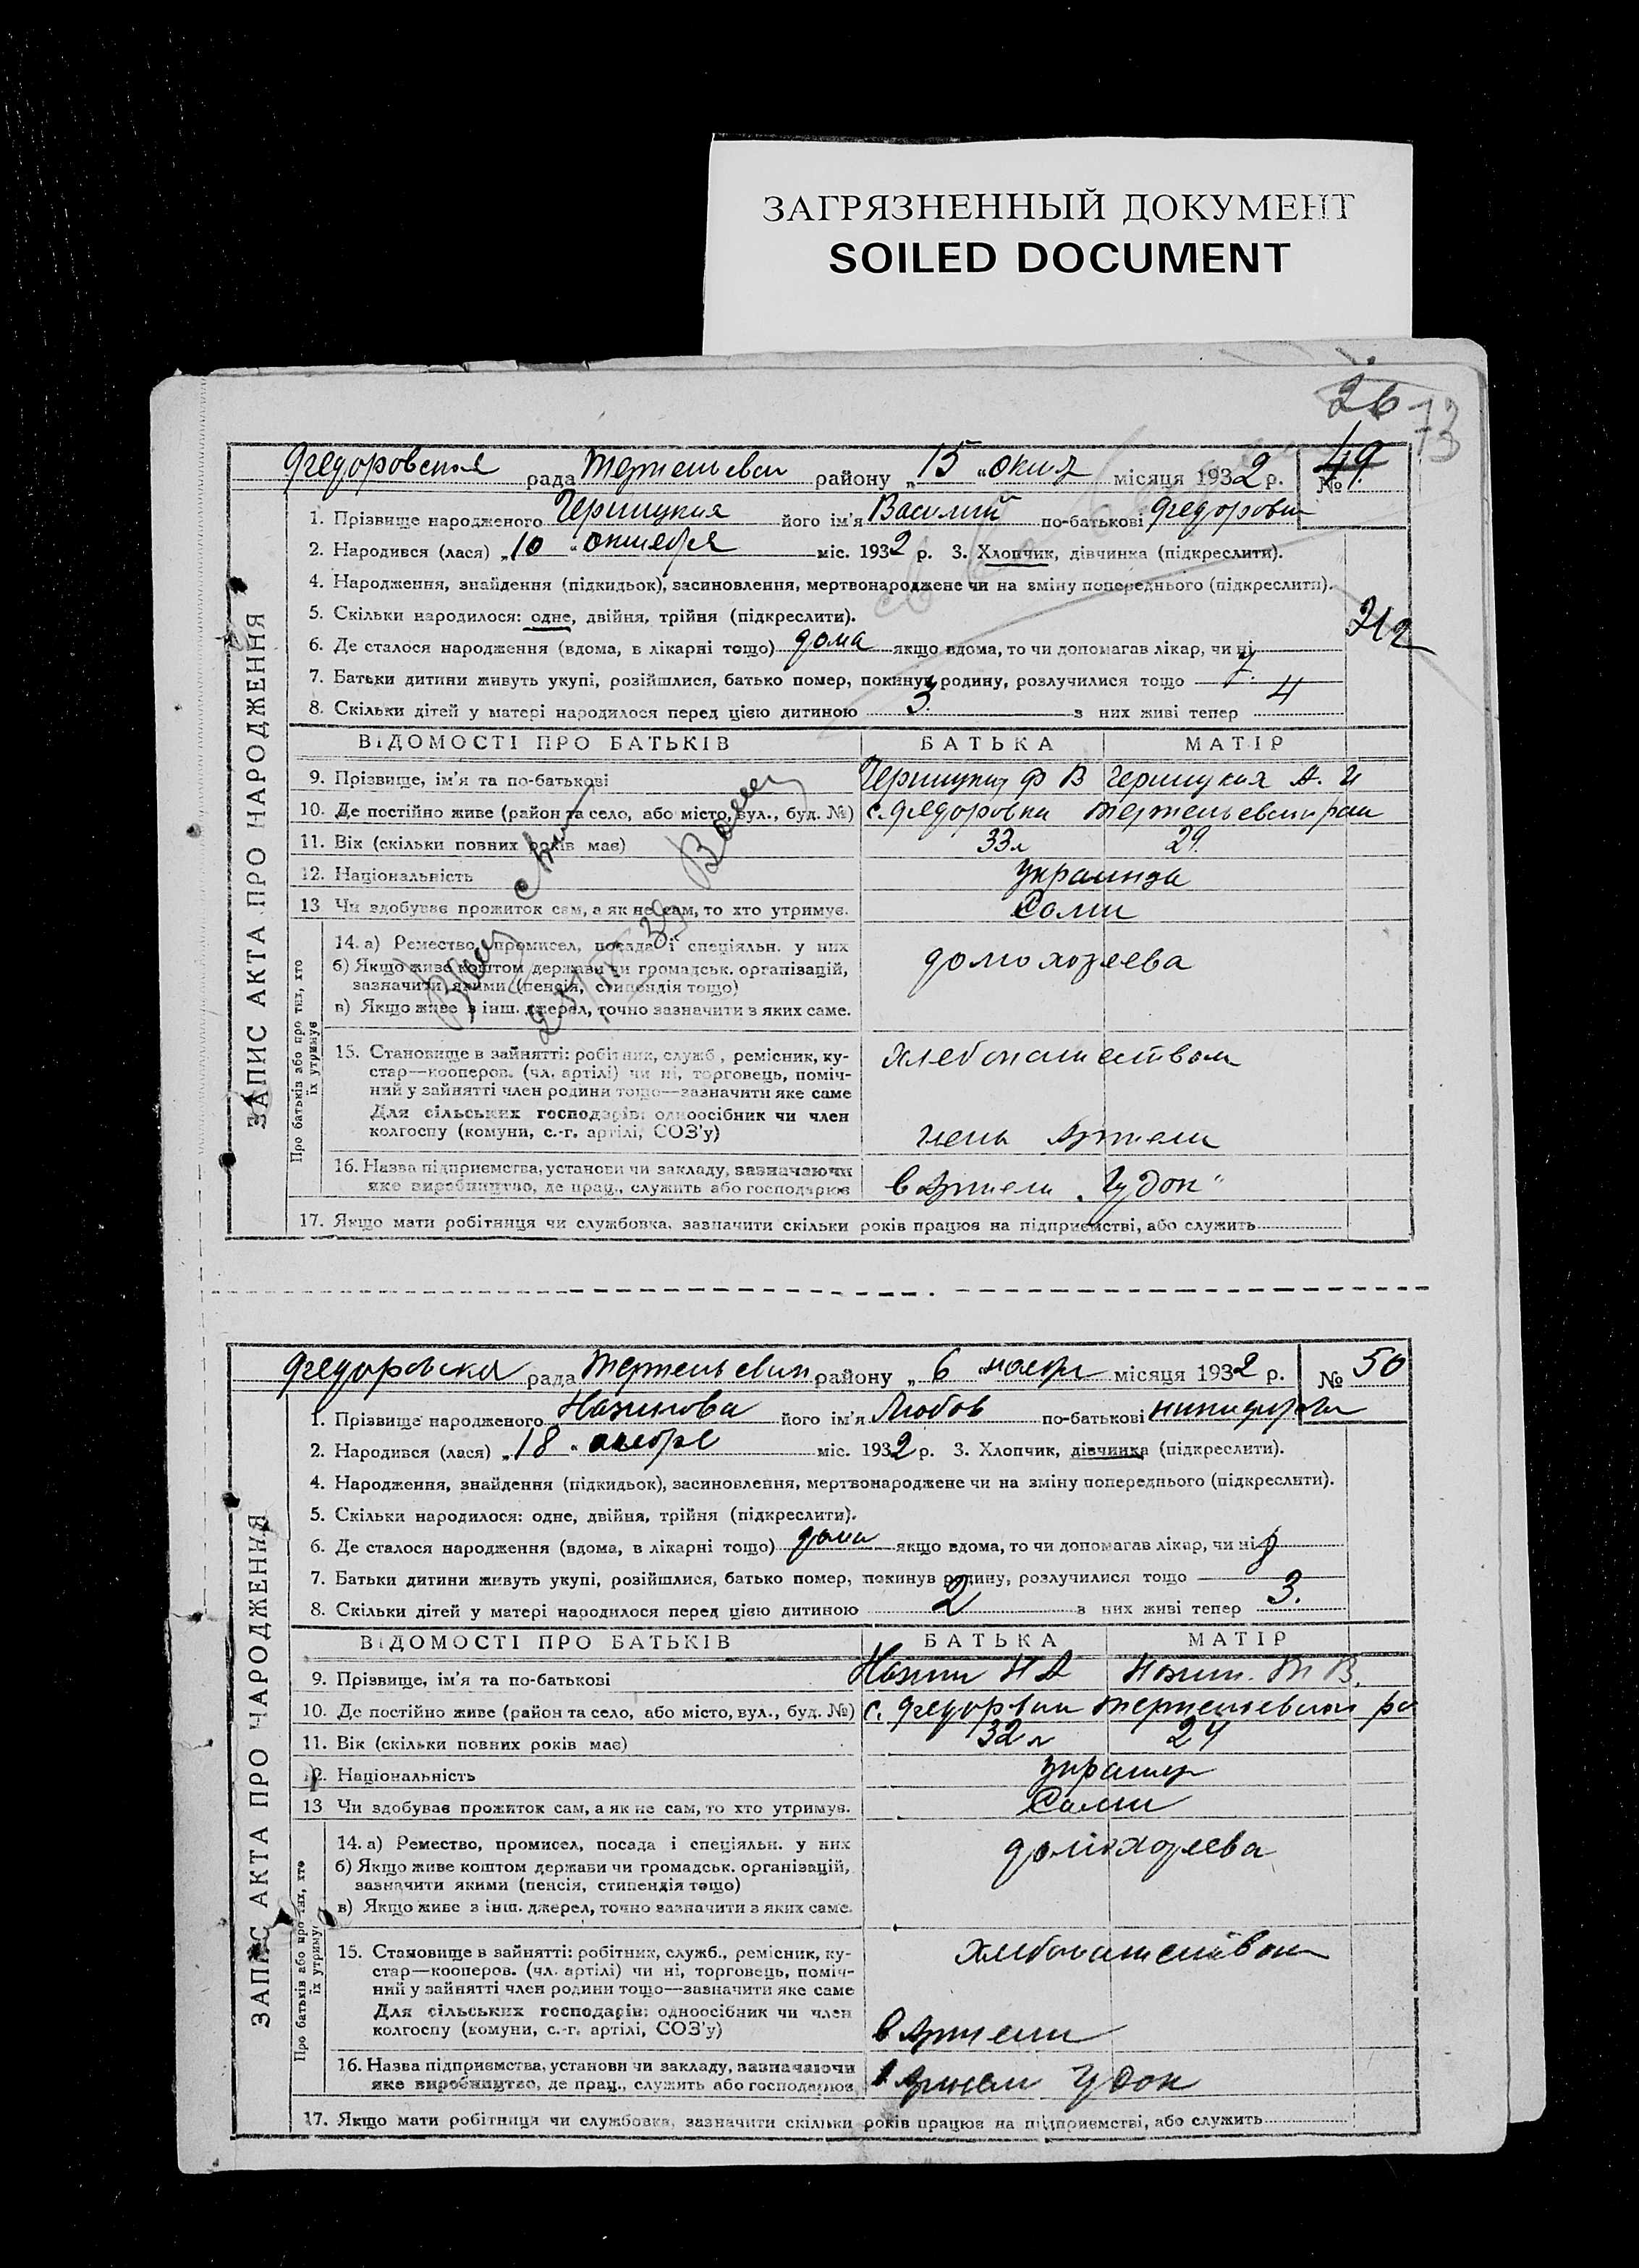 ЗАГРЯЗНЕННЫЙ ДОКУМЕНТ
SOILED DOCUMENT
26
73
ЗАПИС АКТА ПРО НАРОДЖЕННЯ
Федоровская рада району „15 " місяця 1932 р. № 49
1. Прізвище народженого його ім'я Василий по-батькові Федорови
2. Народився (лася) „10 " октября міс. 1932 р. 3. Хлопчик, дівчинка (підкреслити).
4. Народження, знайдення (підкидьок), засиновлення, мертвонароджене чи на зміну попереднього (підкреслити).
5. Скільки народилося: одне, двійня, трійня (підкреслити).
6. Де сталося народження (вдома, в лікарні тощо) дома якщо вдома, то чи допомагав лікар, чи ні
7. Батьки дитини живуть укупі, розійшлися, батько помер, покинув родину, розлучилися тощо
8. Скільки дітей у матері народилося перед цією дитиною 3 з них живі тепер 4
ВІДОМОСТІ ПРО БАТЬКІВ БАТЬКА МАТІР
9. Прізвище, ім'я та по-батькові Ф В А. И
10. Де постійно живе (район та село, або місто, вул., буд. №) с. Федоровка
11. Вік (скільки повних років має) 33 л 29
12. Національність
13 Чи здобуває прожиток сам, а як не сам, то хто утримує. Сами
Про батьків або про тих, хто їх утримує
14. а) Ремество, промисел, посада і спеціяльн. у них
б) Якщо живе коштом держави чи громадськ. організацій,
зазначити якими (пенсія, стипендія тощо)
в) Якщо живе з інш. джерел, точно зазначити з яких саме.
домохозяева
15. Становище в зайнятті: робітник, служб., ремісник, ку-
стар—кооперов. (чл. артілі) чи ні, торговець, поміч-
ний у зайнятті член родини тощо—зазначити яке саме
хлебопашеством
Для сільських господарів: одноосібник чи член
колгоспу (комуни, с.-г. артілі, СОЗ'у)
член Артели
16. Назва підприємства, установи чи закладу, зазначаючи
яке виробництво, де прац., служить або господарює
в Артели
17. Якщо мати робітниця чи службовка, зазначити скільки років працює на підприємстві, або служить
ЗАПИС АКТА ПРО НАРОДЖЕННЯ
Федоровска рада району „ 6 " місяця 1932 р. № 50
1. Прізвище народженого його ім'я Любов по-батькові
2. Народився (лася) „18 " міс. 1932 р. 3. Хлопчик, дівчинка (підкреслити).
4. Народження, знайдення (підкидьок), засиновлення, мертвонароджене чи на зміну попереднього (підкреслити).
5. Скільки народилося: одне, двійня, трійня (підкреслити).
6. Де сталося народження (вдома, в лікарні тощо) дома якщо вдома, то чи допомагав лікар, чи ні
7. Батьки дитини живуть укупі, розійшлися, батько помер, покинув родину, розлучилися тощо
8. Скільки дітей у матері народилося перед цією дитиною 2 з них живі тепер 3.
ВІДОМОСТІ ПРО БАТЬКІВ БАТЬКА МАТІР
9. Прізвище, ім'я та по-батькові
10. Де постійно живе (район та село, або місто, вул., буд. №) с.
11. Вік (скільки повних років має) 32 л 24
12. Національність
13 Чи здобуває прожиток сам, а як не сам, то хто утримує. Сами
Про батьків або про тих, хто їх утримує
14. а) Ремество, промисел, посада і спеціяльн. у них
б) Якщо живе коштом держави чи громадськ. організацій,
зазначити якими (пенсія, стипендія тощо)
в) Якщо живе з інш. джерел, точно зазначити з яких саме.
домохозяева
15. Становище в зайнятті: робітник, служб., ремісник, ку-
стар—кооперов. (чл. артілі) чи ні, торговець, поміч-
ний у зайнятті член родини тощо—зазначити яке саме
хлебопашеством
Для сільських господарів: одноосібник чи член
колгоспу (комуни, с.-г. артілі, СОЗ'у)
в Артели
16. Назва підприємства, установи чи закладу, зазначаючи
яке виробництво, де прац., служить або господарює
в Артели
17. Якщо мати робітниця чи службовка, зазначити скільки років працює на підприємстві, або служить